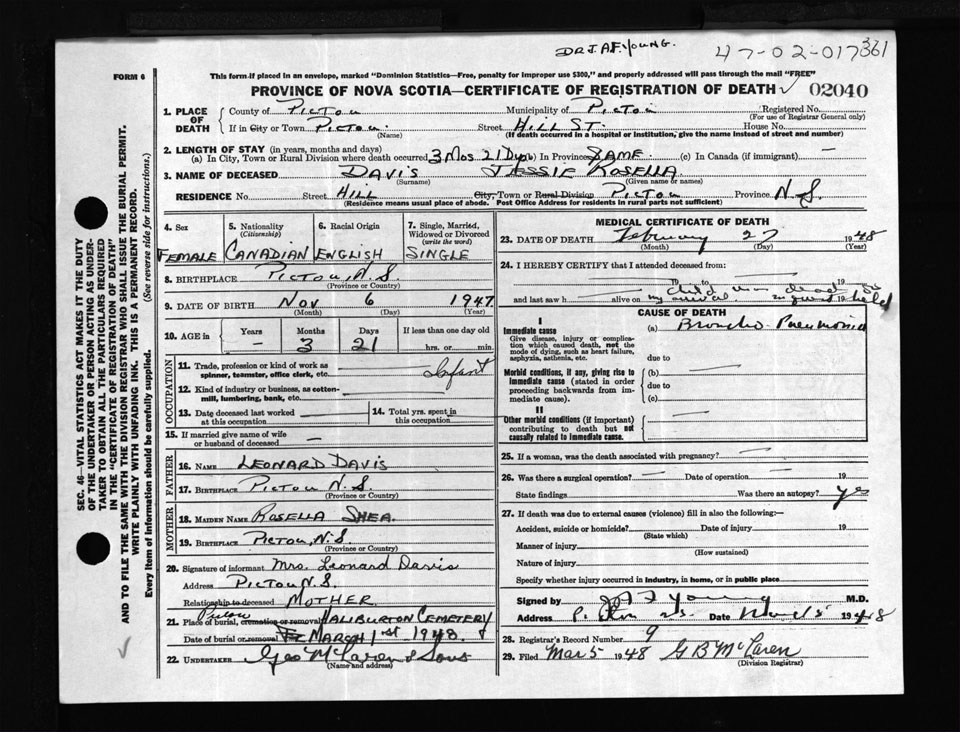 DR J.A.F. YOUNG.
47-02-017361
FORM 6
This form if placed in an envelope, marked "Dominion Statistics—Free, penalty for improper use $300," and properly addressed will pass through the mail "FREE"
PROVINCE OF NOVA SCOTIA—CERTIFICATE OF REGISTRATION OF DEATH ✓ 02040
1. PLACE OF DEATH
County of PICTOU Municipality of PICTOU Registered No.
(For use of Registrar General only)
If in City or Town PICTOU. Street HILL ST. House No.
(Name) (If death occurred in a hospital or institution, give the name instead of street and number)
2. LENGTH OF STAY (in years, months and days)
(a) In City, Town or Rural Division where death occurred 3 Mos 21 Dys (b) In Province SAME (c) In Canada (if immigrant) —
3. NAME OF DECEASED DAVIS JESSIE ROSELLA.
(Surname) (Given name or names)
RESIDENCE No. Street HILL City, Town or Rural Division PICTOU Province N.S
(Residence means usual place of abode. Post Office Address for residents in rural parts not sufficient)
4. Sex
FEMALE
5. Nationality
(Citizenship)
CANADIAN
6. Racial Origin
ENGLISH
7. Single, Married, Widowed or Divorced
(write the word)
SINGLE
8. BIRTHPLACE PICTOU, N.S.
(Province or Country)
9. DATE OF BIRTH NOV 6 1947
(Month) (Day) (Year)
10. AGE in
Years Months Days If less than one day old
— 3 21 hrs. or min.
OCCUPATION
11. Trade, profession or kind of work as spinner, teamster, office clerk, etc. Infant
12. Kind of industry or business, as cotton-mill, lumbering, bank, etc.
13. Date deceased last worked at this occupation
14. Total yrs. spent in this occupation
15. If married give name of wife or husband of deceased —
FATHER
16. NAME LEONARD DAVIS
17. BIRTHPLACE PICTOU N.S.
(Province or Country)
MOTHER
18. MAIDEN NAME ROSELLA SHEA.
19. BIRTHPLACE PICTOU, N.S.
(Province or Country)
20. Signature of informant Mrs. Leonard Davis
Address PICTOU N.S.
Relationship to deceased MOTHER
21. Place of burial, cremation or removal HALIBURTON CEMETERY
Date of burial or removal MARCH 1st 1948.
22. UNDERTAKER Geo McLaren & Sons
(Name and address)
MEDICAL CERTIFICATE OF DEATH
23. DATE OF DEATH February 27 1948
(Month) (Day) (Year)
24. I HEREBY CERTIFY that I attended deceased from:
19 to child was dead 19 on
and last saw h alive on my arrival. 19 held
CAUSE OF DEATH
I
Immediate cause
Give disease, injury or complication which caused death, not the mode of dying, such as heart failure, asphyxia, asthenia, etc.
(a) Broncho-Pneumonia
due to
Morbid conditions, if any, giving rise to immediate cause (stated in order proceeding backwards from immediate cause).
(b)
due to
(c)
II
Other morbid conditions (if important) contributing to death but not causally related to immediate cause.
25. If a woman, was the death associated with pregnancy?
26. Was there a surgical operation? Date of operation 19
State findings Was there an autopsy? yes
27. If death was due to external causes (violence) fill in also the following:—
Accident, suicide or homicide? Date of injury 19
(State which)
Manner of injury
(How sustained)
Nature of injury
Specify whether injury occurred in industry, in home, or in public place
Signed by J A F Young M.D.
Address Date 1948
28. Registrar's Record Number 9
29. Filed Mar 5 1948 G B McLaren
(Division Registrar)
SEC. 46—VITAL STATISTICS ACT MAKES IT THE DUTY
OF THE UNDERTAKER OR PERSON ACTING AS UNDER-
TAKER TO OBTAIN ALL THE PARTICULARS REQUIRED
IN THE "CERTIFICATE OF REGISTRATION OF DEATH"
AND TO FILE THE SAME WITH THE DIVISION REGISTRAR WHO SHALL ISSUE THE BURIAL PERMIT.
WRITE PLAINLY WITH UNFADING INK. THIS IS A PERMANENT RECORD.
Every item of information should be carefully supplied. (See reverse side for instructions.)